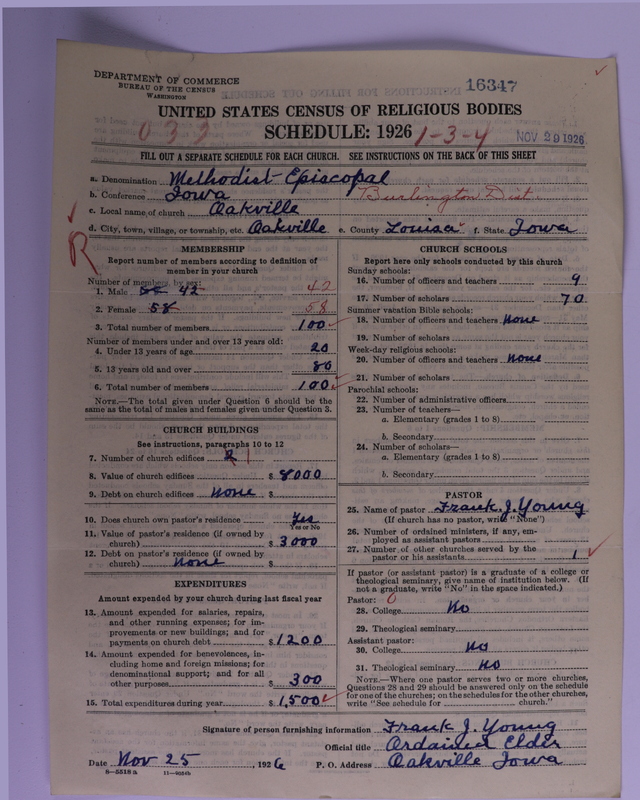 DEPARTMENT OF COMMERCE
BUREAU OF THE CENSUS
WASHINGTON
16347
UNITED STATES CENSUS OF RELIGIOUS BODIES
033 SCHEDULE: 1926 1-3-4 NOV 29 1926
FILL OUT A SEPARATE SCHEDULE FOR EACH CHURCH. SEE INSTRUCTIONS ON THE BACK OF THIS SHEET
a. Denomination Methodist Episcopal
b. Conference Iowa Burlington Dist.
c. Local name of church Oakville
d. City, town, village, or township, etc. Oakville e. County Louisa f. State Iowa
R
MEMBERSHIP
Report number of members according to definition of
member in your church
Number of members, by sex:
1. Male 58 42 42
2. Female 58 58
3. Total number of members 100
Number of members under and over 13 years old:
4. Under 13 years of age 20
5. 13 years old and over 80
6. Total number of members 100
NOTE.—The total given under Question 6 should be the
same as the total of males and females given under Question 3.
CHURCH BUILDINGS
See instructions, paragraphs 10 to 12
7. Number of church edifices 2 1
8. Value of church edifices $ 8000
9. Debt on church edifices None $
10. Does church own pastor's residence Yes
Yes or No
11. Value of pastor's residence (if owned by
church) $ 3000
12. Debt on pastor's residence (if owned by
church) None $
EXPENDITURES
Amount expended by your church during last fiscal year
13. Amount expended for salaries, repairs,
and other running expenses; for im-
provements or new buildings; and for
payments on church debt $ 1200
14. Amount expended for benevolences, in-
cluding home and foreign missions; for
denominational support; and for all
other purposes $ 300
15. Total expenditures during year $ 1,500
CHURCH SCHOOLS
Report here only schools conducted by this church
Sunday schools:
16. Number of officers and teachers 9
17. Number of scholars 70
Summer vacation Bible schools:
18. Number of officers and teachers None
19. Number of scholars
Week-day religious schools:
20. Number of officers and teachers None
21. Number of scholars
Parochial schools:
22. Number of administrative officers
23. Number of teachers—
a. Elementary (grades 1 to 8)
b. Secondary
24. Number of scholars—
a. Elementary (grades 1 to 8)
b. Secondary
PASTOR
25. Name of pastor Frank. J. Young
(If church has no pastor, write "None")
26. Number of ordained ministers, if any, em-
ployed as assistant pastors
27. Number of other churches served by the
pastor or his assistants 1
If pastor (or assistant pastor) is a graduate of a college or
theological seminary, give name of institution below. (If
not a graduate, write "No" in the space indicated.)
Pastor: 0
28. College No
29. Theological seminary
Assistant pastor:
30. College No
31. Theological seminary No
NOTE.—Where one pastor serves two or more churches,
Questions 28 and 29 should be answered only on the schedule
for one of the churches; on the schedules for the other churches,
write "See schedule for church."
Signature of person furnishing information Frank J. Young
Official title Ordained Elder
Date Nov 25, 1926 P. O. Address Oakville Iowa
8—5518 a 11—9024b